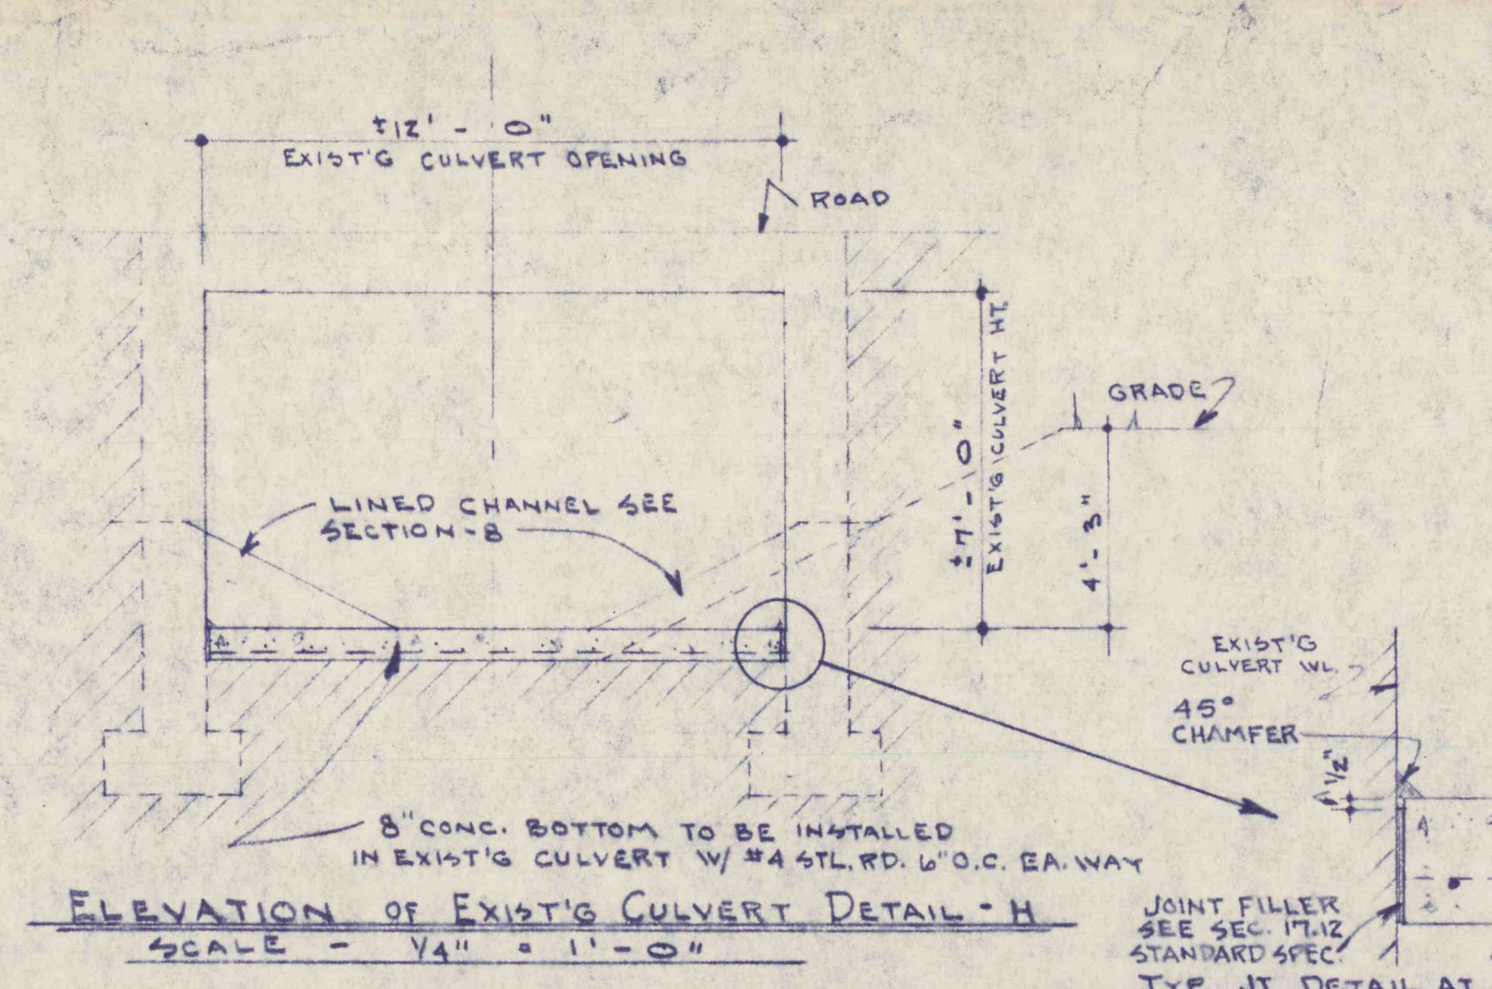 ±12' - 0"
EXIST'G CULVERT OPENING
ROAD
±7' - 0"
EXIST'G CULVERT HT.
GRADE
4' - 3"
LINED CHANNEL SEE
SECTION - 8
EXIST'G
CULVERT WL.
45°
CHAMFER
1/2"
8" CONC. BOTTOM TO BE INSTALLED
IN EXIST'G CULVERT W/ #4 STL. RD. 6" O.C. EA. WAY
ELEVATION OF EXIST'G CULVERT DETAIL - H
SCALE - 1/4" = 1' - 0"
JOINT FILLER
SEE SEC. 17.12
STANDARD SPEC.
TYP. JT. DETAIL AT